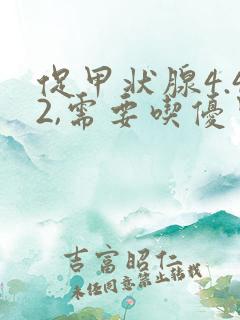 促甲状腺4.
2,需要喫優
吉富昭仁
未经同意禁止转载